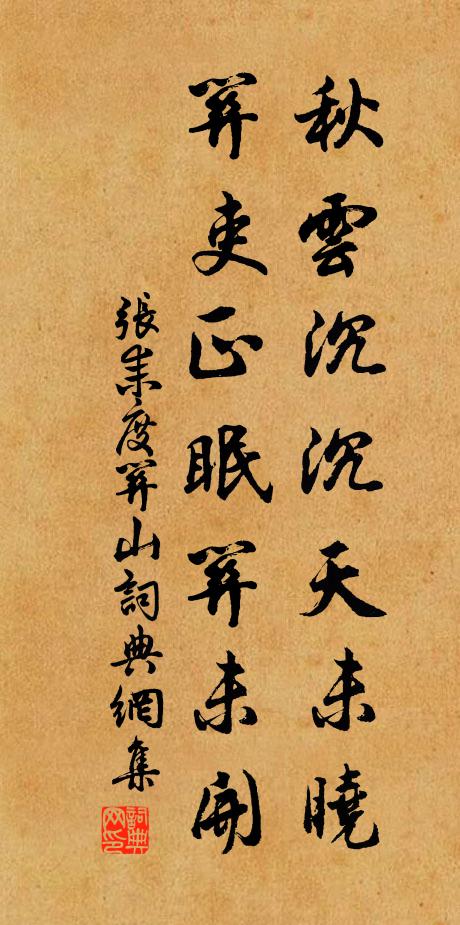 秋雲沉沉天未曉
關吏正眠關未開
張耒度關山詞典網集
詞典网印